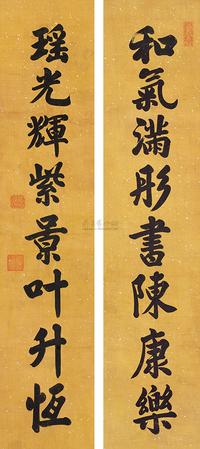 和氣滿彤書陳康樂
瑤光輝紫景叶升恆